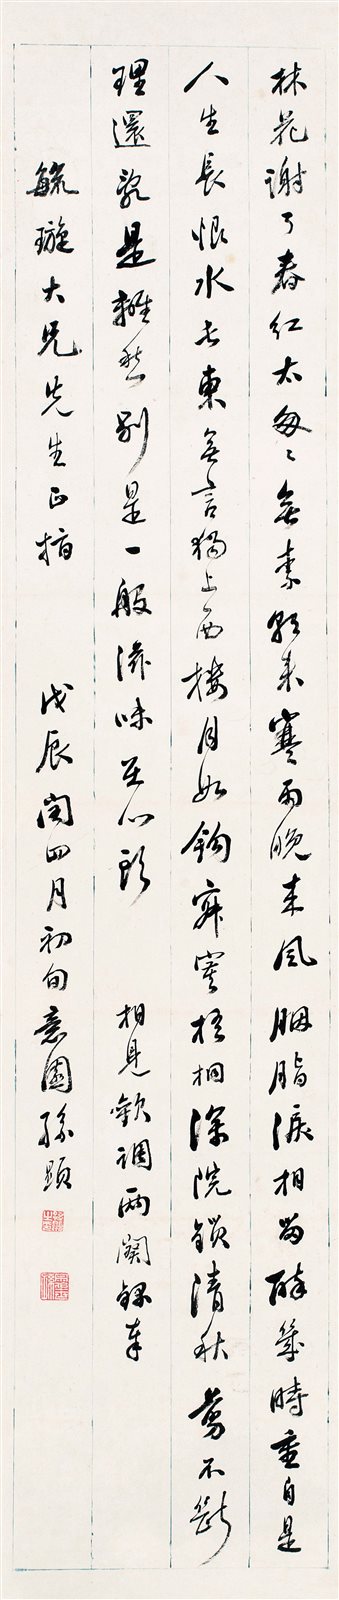 林花謝了春紅太匆〻無奈朝来寒雨晚来風 胭脂淚相留醉幾時重自是
人生長恨水長東無言獨上西樓月如鉤寂寞梧桐深院鎖清秋 翦不斷
理還亂是離愁別是一般滋味在心頭 相見歡調兩闋錄奉
毓璇大兄先生正指 戊辰閏四月初旬意園孫顯